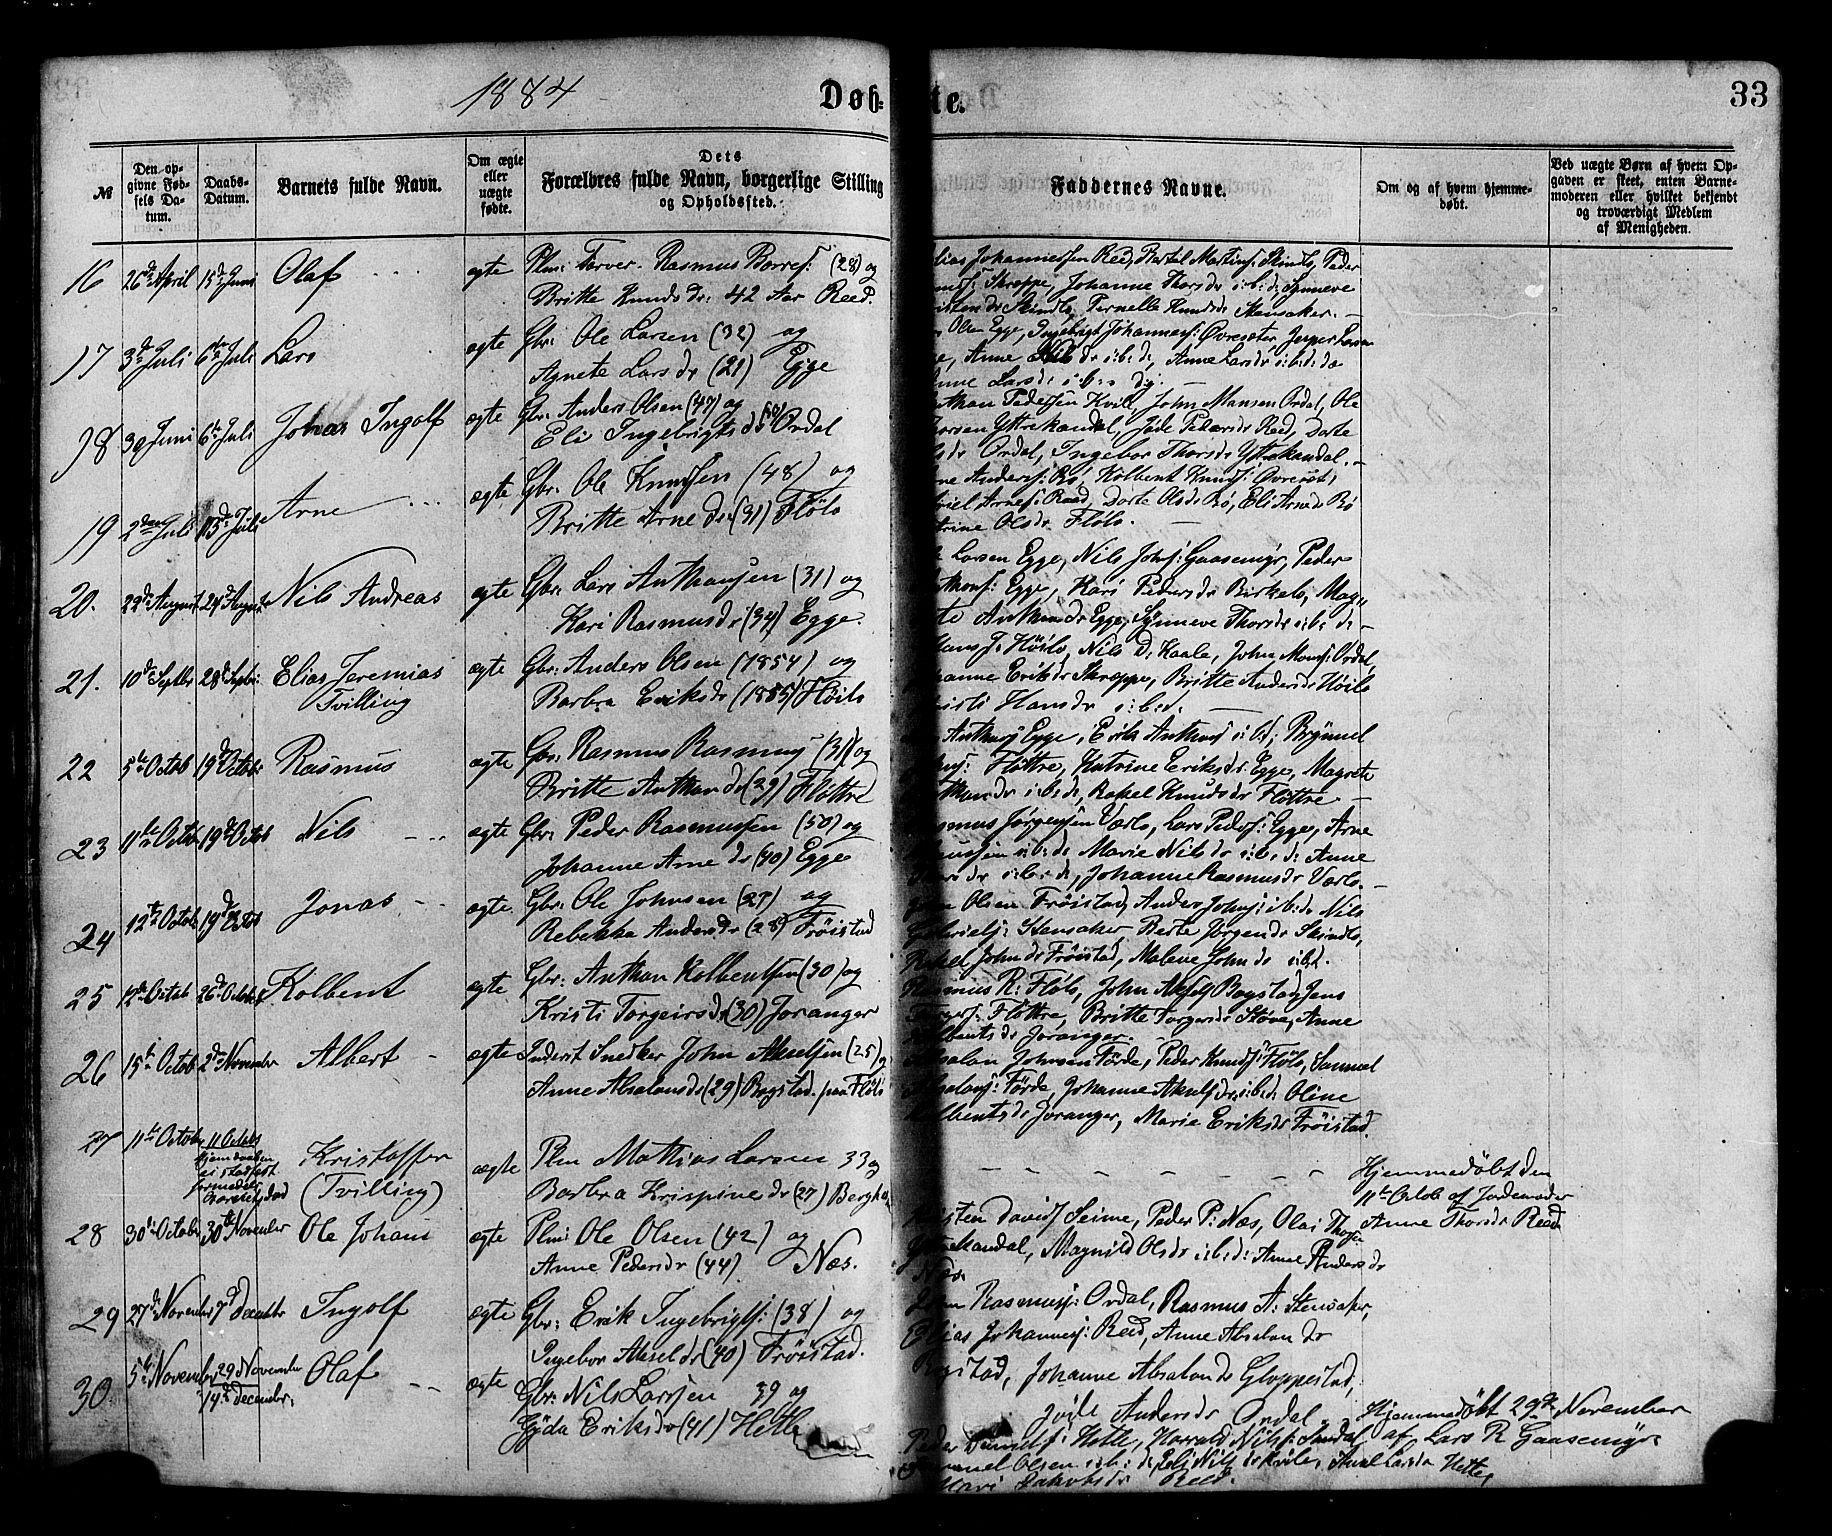 1884
Døb-
te.
33
№
Den op-
givne Fød-
sels Da-
tum.
Daabs-
Datum.
Barnets fulde Navn.
Om ægte
eller
uægte
fødte.
Dets
Forældres fulde Navn, borgerlige Stilling
og Opholdssted.
Faddernes Navne.
Om og af hvem hjemme-
døbt.
Ved uægte Børn af hvem Op-
gaven er skeet, enten Barne-
moderen eller hvilket bekjendt
og troværdigt Medlem
af Menigheden.
16 26de April 15de Juni Olaf ægte Plm: Farver Rasmus Borres: (28) og
Britte Knudsdr: 42 Aar Reed.
Johannessen Reed, Bertel Martins: Skindlo, Peder
Skroppe, Johanne Thorsdr i:b:d: Synneve
Skindlo, Pernelle Knudsdr Stensaker. -
17 3de Juli 6te Juli Lars ægte Gbr: Ole Larsen (32) og
Agnete Larsdr (21) Egge
Olsen Egge, Ingebrigt Johanness: Øvresæter Jesper Larsen
Anne Nilsdr i:b:d:, Anne Larsdr i:b:d: do
Anne Larsdr i:b:
18 30 Juni 6te Juli Johan Ingolf ægte Gbr: Anders Olsen (47) og
Eli Ingebrigtsdr Ordal
Anthan Pedersen Kvile, John Monsen Ordal, Ole
Thorsen Yttrekandal, Jøde Pedersdr Reed, Dorte
Ordal, Ingebor Thorsdr Yttrekandal. -
19 2den Juli 13de Juli Arne ægte Gbr: Ole Knudsen (48) og
Britte Arnedr (31) Fløلo
Arne Anders: Bø, Kolbent Knuds: Øvresæt,
Arnes: Reed, Dorte Olsdr Bø, Eli Arnedr Bø
Olsdr Flølo. -
20. 22de August 24de August Nils Andreas ægte Gbr: Lars Anthansen (31) og
Kari Rasmusdr (34) Egge.
Larsen Egge, Nils Johs: Gaasemyr, Peder
Anthons: Egge, Kari Pedersdr Birkelo, Mag-
Anthansdr Egge, Synneve Thorsdr i:b:d: -
21. 10de Septbr 28de Septbr: Elias Jeremias
Tvilling
ægte Gbr: Anders Olsen (1854) og
Barbra Eriksdr (1855) Fløilo
Hans J: Høilo, Nils D: Kaale, John Mons: Ordal,
Johanne Eriksdr Skroppe, Britte Andersdr Høilo
Hansdr i:b:d. -
22 5te Octob 19de Octob: Rasmus ægte Gbr: Rasmus Rasmuss (31) og
Britte Anthandr (29) Fløttre
Anthans: Egge, Erik Anthans: i:b:d: Brynnel
Fløttre, Katrine Eriksdr Egge, Magrete
Anthandr i:b:d:, Rakel Knudsdr Fløttre. -
23 11te Octob 19de Octob Nils ægte Gbr: Peder Rasmussen (50) og
Johanne Arnedr (40) Egge
Rasmus Jørgensen Værlo, Lars Peders: Egge, Arne
i:b:d: Marie Nilsdr i:b:d: Anne
i:b:d:, Johanne Rasmusdr Værlo. -
24 12te Octob 19de Octob Jonas ægte. Gbr: Ole Johnsen (27) og
Rebekka Andersdr (28) Frøistad
Olsen Frøistad, Anders Johns: i:b:d: Nils
Gabriels: Stensaker, Berte Jørgendr Skindlo,
Rakel Johndr Frøistad, Malene Johndr i:b:d.
25 12te Octob 26de Octob Kolbent ægte Gbr: Anthan Kolbentsen (30) og
Kristi Torgeirsdr (30) Joranger
Rasmus R: Flølo, John Aksels: Bogstad, Jens
Fløttre, Britte Torgersdr Støve, Anne
Kolbentsdr Joranger. -
26 15te Octob 2de November Albert ægte Inderst Snedker John Akselsen (25) og
Anne Absalonsdr (29) Bogstad paa Fløلo
Absalon Johnsen Førde, Peder Knuds: Flølo, Samuel
Absalons: Førde, Johanne Akselsdr i:b:d: Oline
Kolbentsdr Joranger, Marie Eriksdr Frøistad.
27 11te October 11 Octobs
Hjemdaaben
ei stadfæst
formedelst
Barnets død
Kristoffer
(Tvilling)
ægte Plm Mathias Larsen 33 og
Barbra Krispinedr (27) Bergh
Hjemmedøbt den
11te Octob af Jordemoder
Anne Thorsdr Reed
28 30te October 30te November Ole Johan ægte Plm: Ole Olsen (42) og
Anne Pedersdr (44) Næs.
Davids: Seime, Peder P: Næs, Olai Thors:
Yttrekandal, Magnild Olsdr i:b:d: Anne Andersdr
Næs.
29 27de November 7de December Ingolf ægte Gbr: Erik Ingebrigts: (38) og
Ingebor Akseldr (40) Frøistad.
Rasmuss: Ordal, Rasmus A: Stensaker,
Elias Johanness: Reed, Anne Absalondr
Bogstad, Johanne Absalondr Gloppestad,
Jøde Andersdr Ordal
30 5te November 29 November
14de december.
Olaf ægte Gbr: Nils Larssen 39 og
Gyda Eriksdr (41) Hetle
Peder Hetle, Harald Nils: Sandal
Olsen i:b:d:, Eli Nilsdr Kvile, Anne Larsdr Hetle,
Jakobsdr Reed.
Hjemmedøbt 29de November
af Lars R Gaasemyr